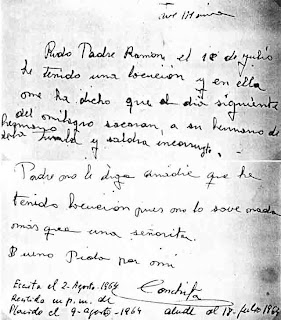 Ave Maria
Rvdo Padre Ramon, el 18 de julio
he tenido una locucion y en ella
me ha dicho que el dia siguiente
del milagro sacaran, a su hermano de
hermano
y saldra incorrupto.
Padre no le diga anadie que he
tenido locucion pues no lo save nada
mas que a una señorita.
Bueno Pida por mi
Conchita
Escrita el 2. Agosto. 1964
Recibida
el 9-agosto-1964
alude al 18. julio 1964